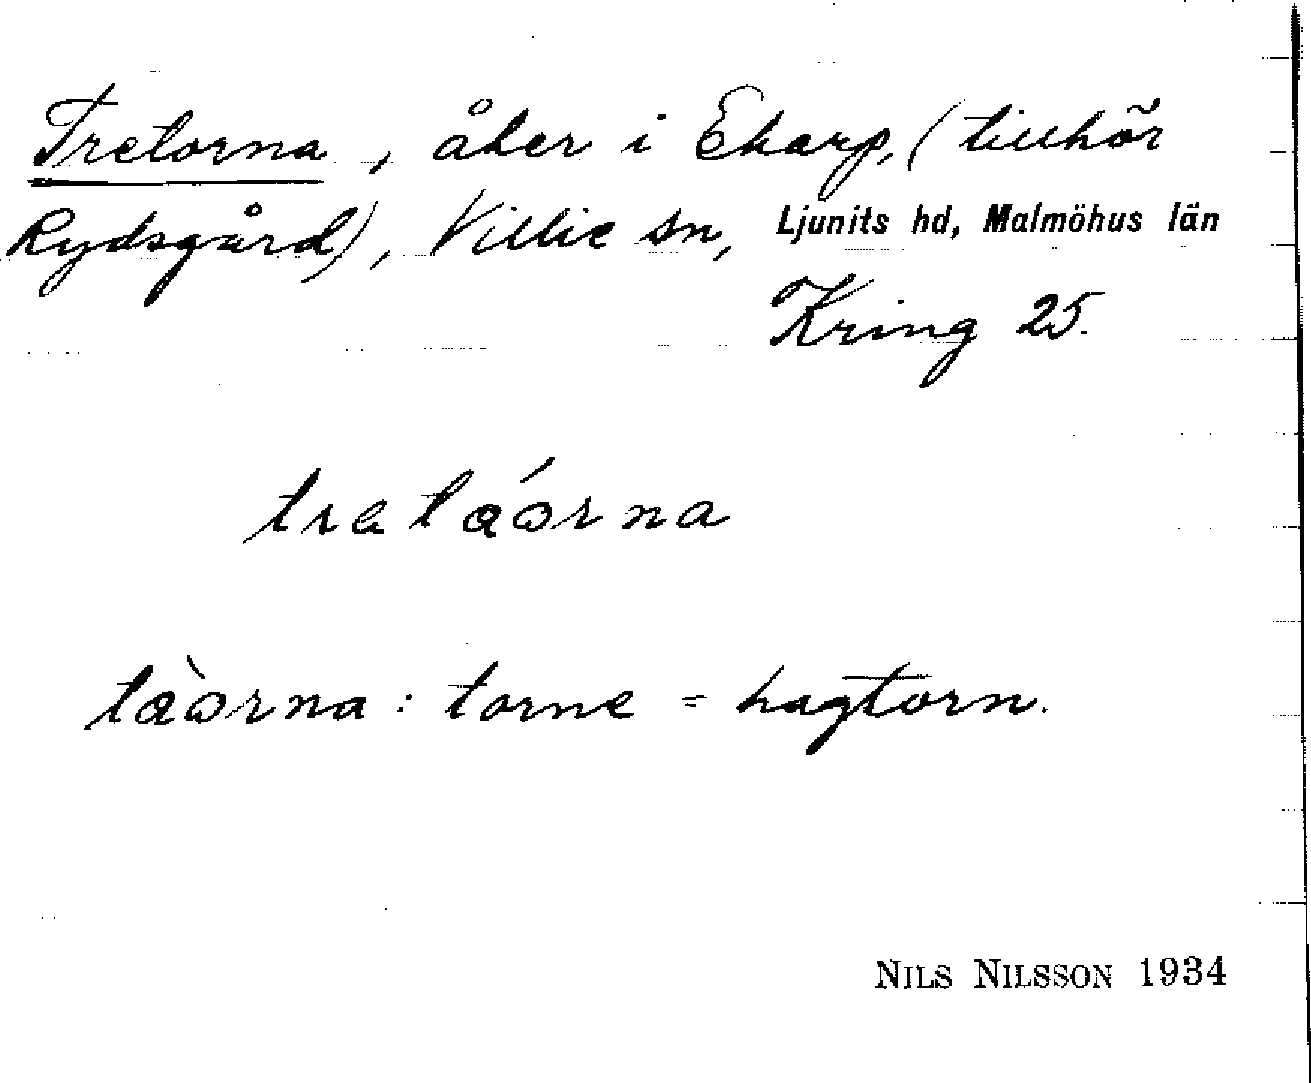 Tretorna, åker i Ekarp, (tillhör
Rydsgård), Villie sn, Ljunits hd, Malmöhus län
Kring 25.
tratáorna
tàorna: torne = hagtorn.
NILS NILSSON 1934